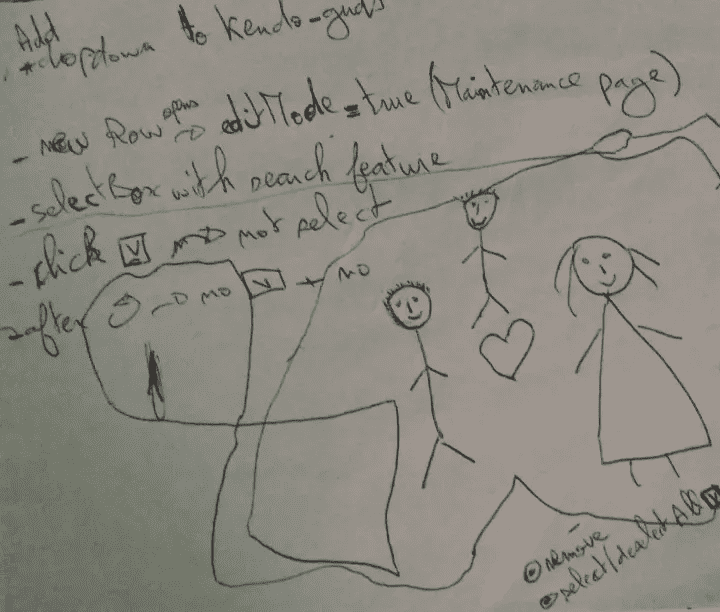 Add
* dropdown to Kendo-grids
- new Row opens → editMode = true (Maintenance page)
- selectBox with search feature
- click → not select
after → no + no
remove
select/deselect All